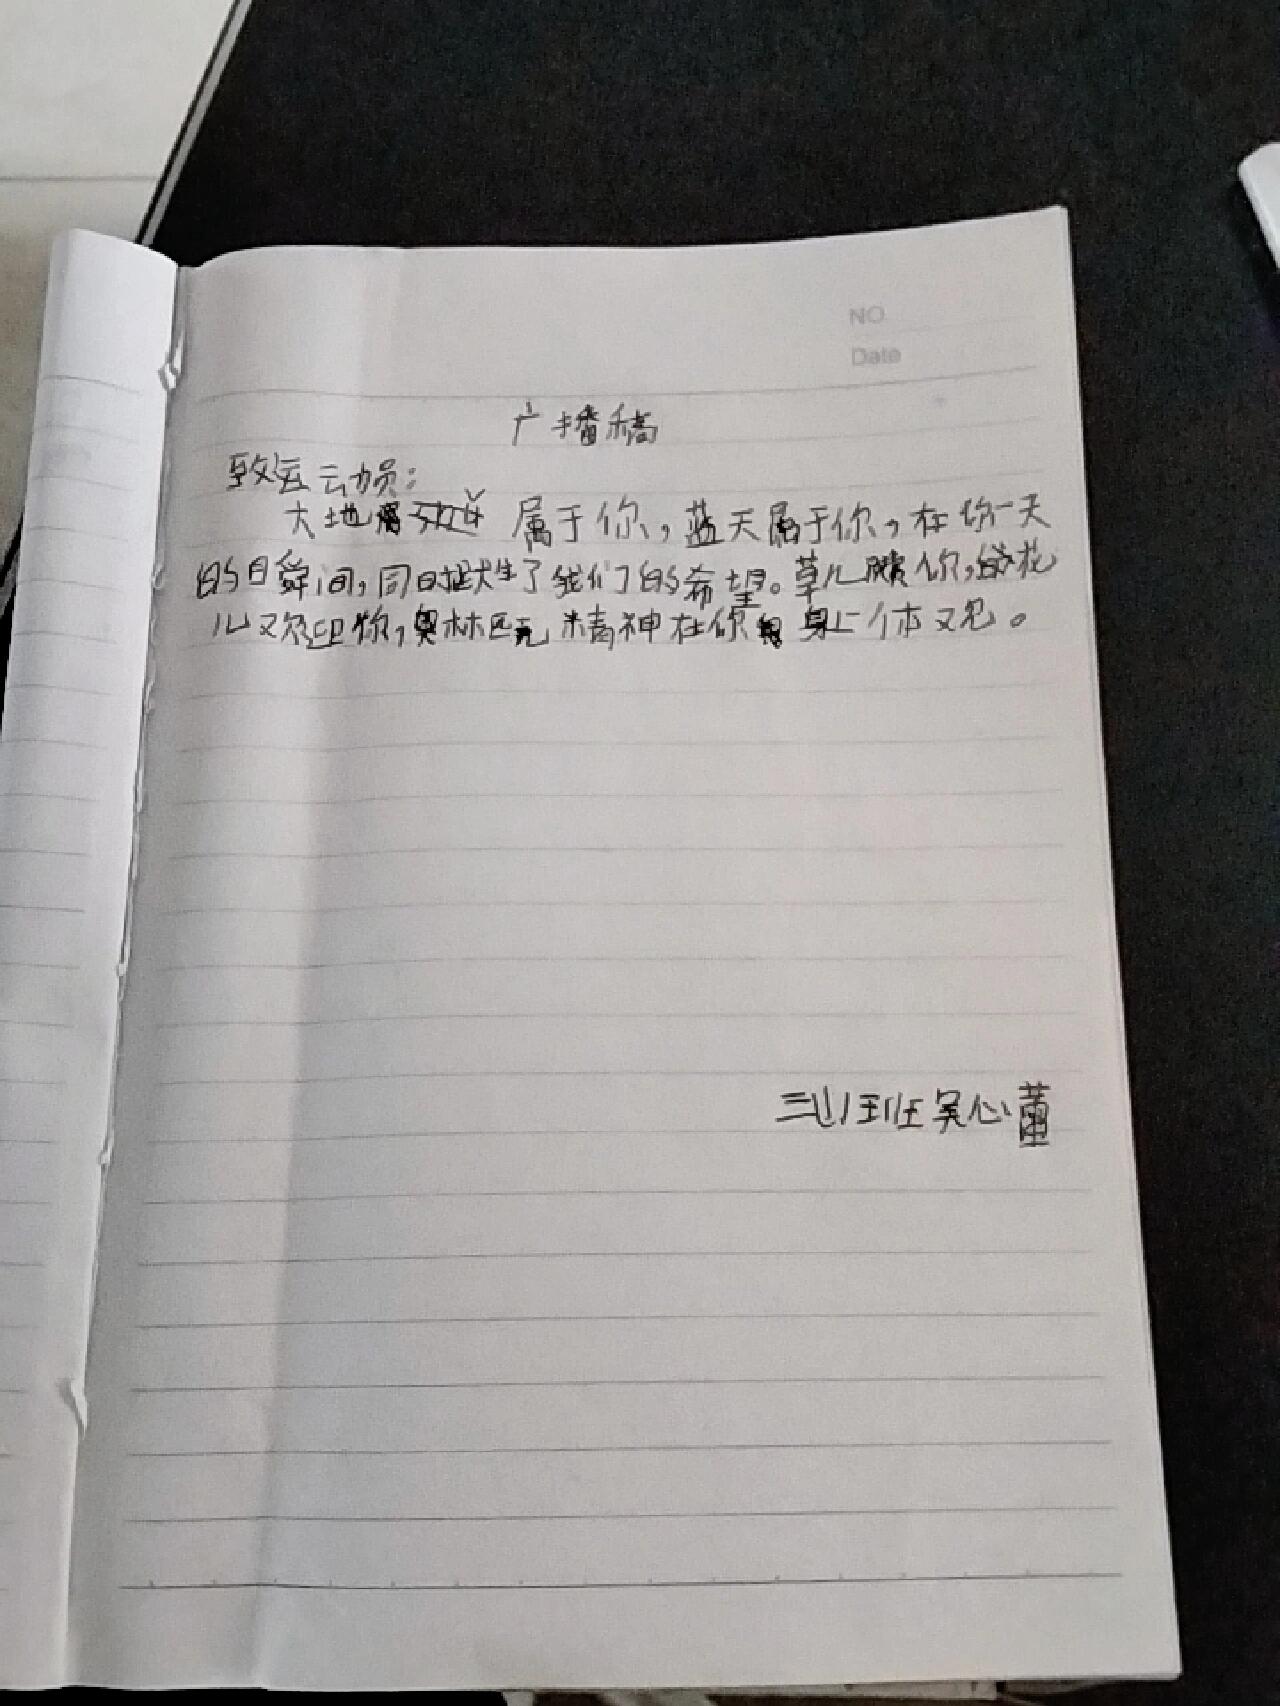 NO
Date
广播稿
致运动员:
大地属于你,蓝天属于你,在你一天
的瞬间,同时诞生了我们的希望。草儿 你,花
儿欢迎你,奥林匹克精神在你身上体现。
三(1)班吴心蕾